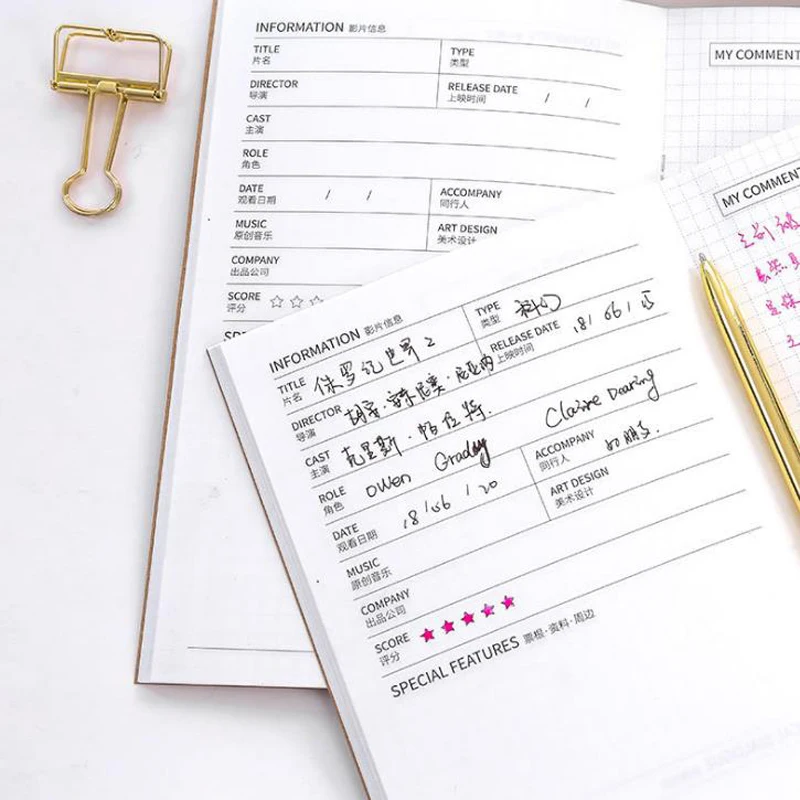 INFORMATION 影片信息
TITLE 片名
TYPE 类型
DIRECTOR 导演
RELEASE DATE 上映时间 / /
CAST 主演
ROLE 角色
DATE 观看日期 / /
ACCOMPANY 同行人
MUSIC 原创音乐
ART DESIGN 美术设计
COMPANY 出品公司
SCORE 评分 ☆☆☆
MY COMMENT
INFORMATION 影片信息
TITLE 片名 侏罗纪世界2
TYPE 类型 科幻
DIRECTOR 导演 胡安·安东尼奥·巴亚纳
RELEASE DATE 上映时间 18/06/15
CAST 主演 克里斯·帕拉特
ROLE 角色 Owen Grady Claire Dearing
DATE 观看日期 18/06/20
ACCOMPANY 同行人
MUSIC 原创音乐
ART DESIGN 美术设计
COMPANY 出品公司
SCORE 评分 ★★★★★
SPECIAL FEATURES 票根·资料·周边
MY COMMENT